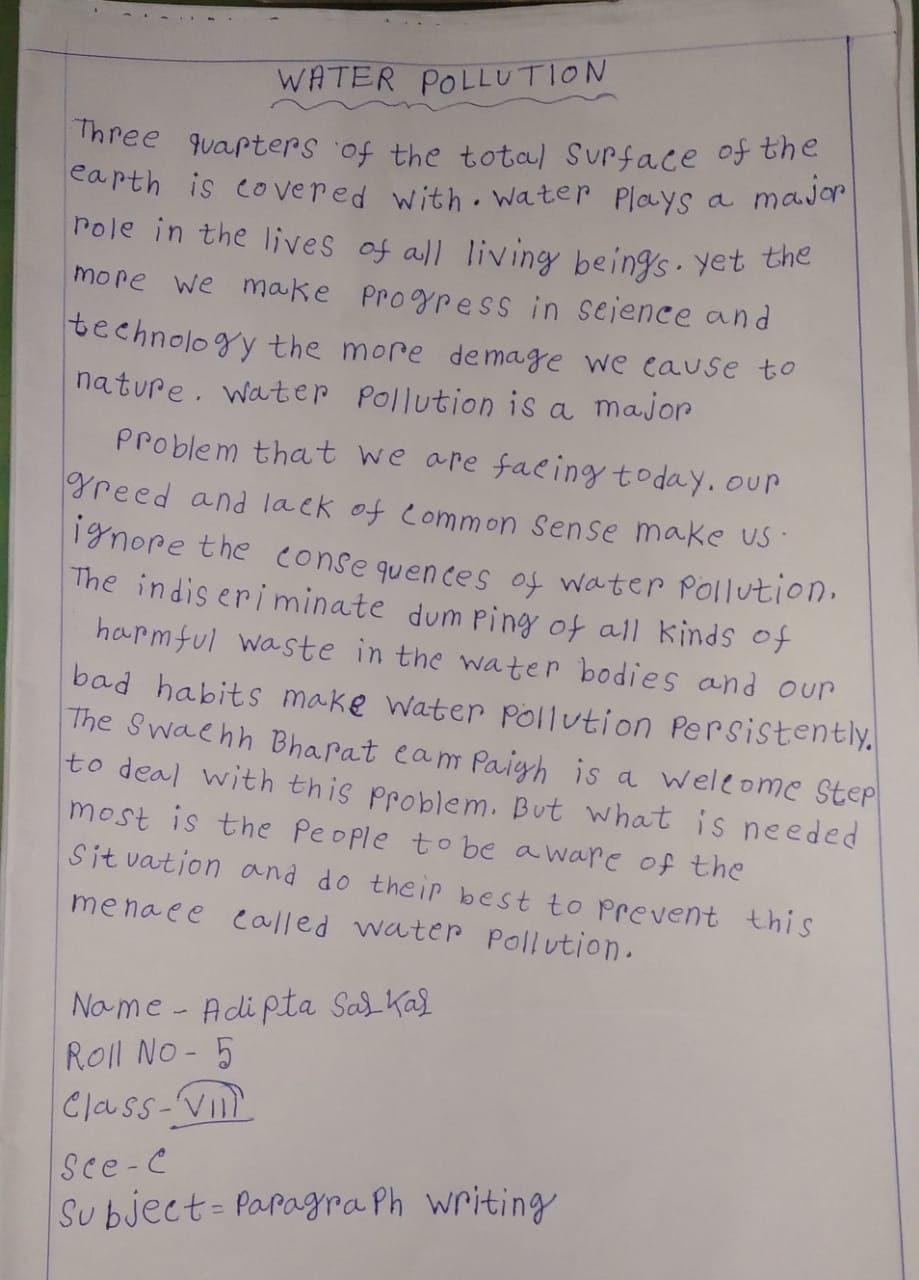 WATER POLLUTION
Three quarters of the total surface of the
earth is covered with. Water plays a major
role in the lives of all living beings. Yet the
more we make progress in science and
technology the more demage we cause to
nature. Water pollution is a major
problem that we are facing today. our
greed and lack of common sense make us
ignore the consequences of water pollution.
The indiscriminate dumping of all kinds of
harmful waste in the water bodies and our
bad habits make water pollution persistently.
The Swachh Bharat campaigh is a welcome step
to deal with this problem. But what is needed
most is the people to be aware of the
situation and do their best to prevent this
menace called water pollution.
Name - Adipta Sarkar
Roll No - 5
Class - VIII
Sce - C
Subject = Paragraph writing